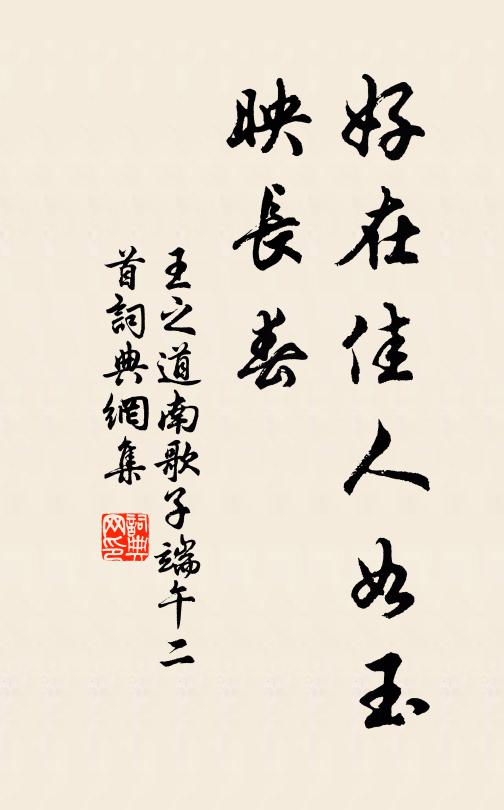 好在佳人如玉
映長春
王之道南歌子端午二
首詞典網集
詞典
网印